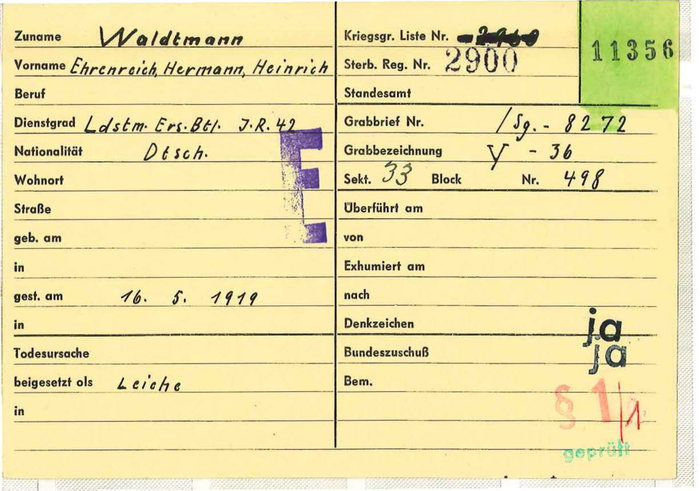 Zuname Waldtmann
Vorname Ehrenreich, Hermann, Heinrich
Beruf
Dienstgrad Ldstm. Ers. Btl. J.R. 42
Nationalität Dtsch.
Wohnort
Straße
geb. am
in
gest. am 16. 5. 1919
in
Todesursache
beigesetzt als Leiche
in
E
Kriegsgr. Liste Nr.
Sterb. Reg. Nr. 2900
Standesamt
Grabbrief Nr. /Sg. - 8272
Grabbezeichnung Y - 36
Sekt. 33 Block Nr. 498
Überführt am
von
Exhumiert am
nach
Denkzeichen ja
Bundeszuschuß ja
Bem.
§ 1/1
geprüft
11356